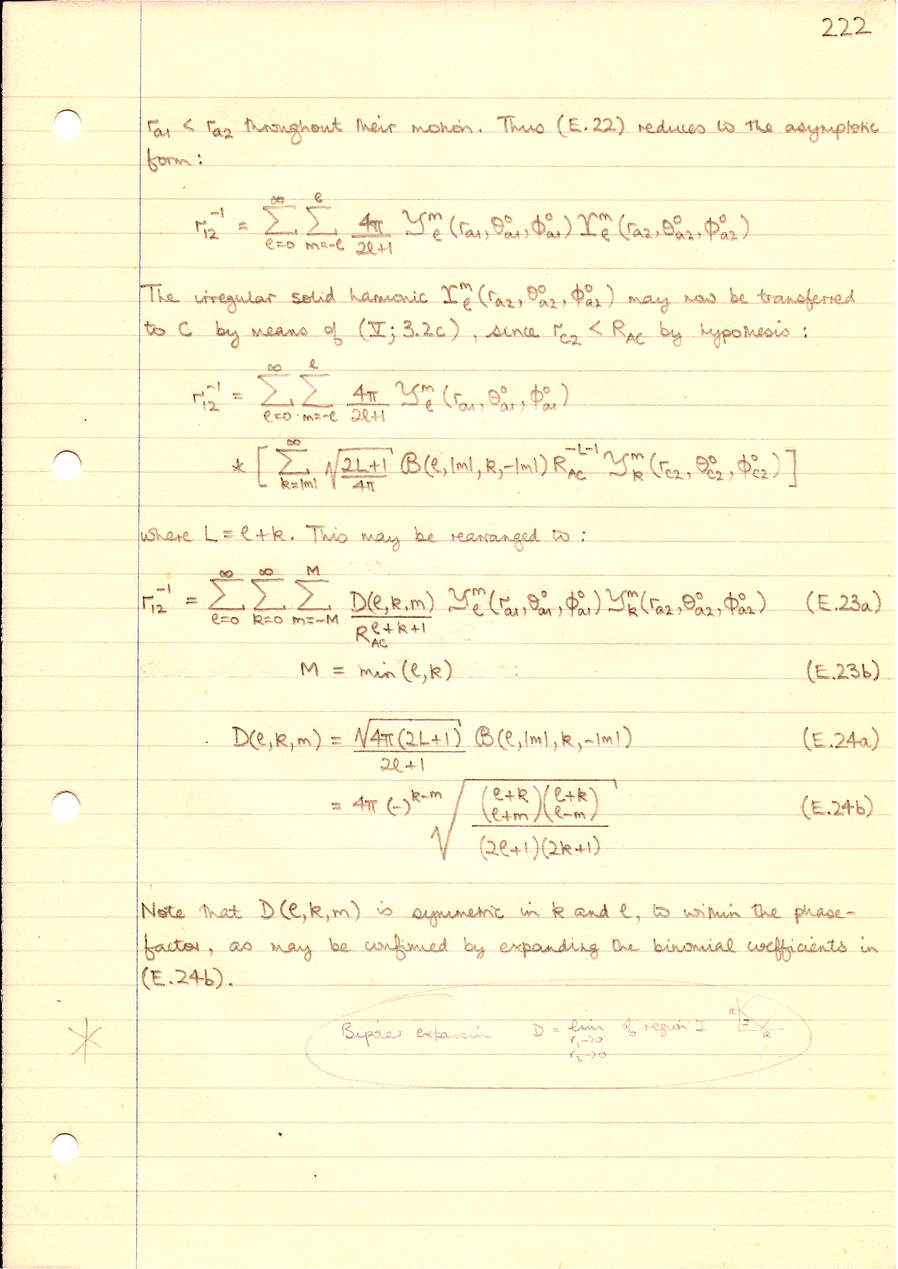 222
r_{a1} < r_{a2} throughout their motion. Thus (E.22) reduces to the asymptotic
form:
r_{12}^{-1} = \sum_{ℓ=0}^{∞} \sum_{m=-ℓ}^{ℓ} \frac{4π}{2ℓ+1} 𝒴_ℓ^m (r_{a1}, θ°_{a1}, ϕ°_{a1}) ϒ_ℓ^m (r_{a2}, θ°_{a2}, ϕ°_{a2})
The irregular solid harmonic ϒ_ℓ^m (r_{a2}, θ°_{a2}, ϕ°_{a2}) may now be transferred
to C by means of (V; 3.2c), since r_{c2} < R_{AC} by hypothesis:
r_{12}^{-1} = \sum_{ℓ=0}^{∞} \sum_{m=-ℓ}^{ℓ} \frac{4π}{2ℓ+1} 𝒴_ℓ^m (r_{a1}, θ°_{a1}, ϕ°_{a1})
* [ \sum_{k=|m|}^{∞} \sqrt{\frac{2L+1}{4π}} ℬ(ℓ,|m|,k,-|m|) R_{AC}^{-L-1} 𝒴_k^m (r_{c2}, θ°_{c2}, ϕ°_{c2}) ]
where L = ℓ+k. This may be rearranged to:
r_{12}^{-1} = \sum_{ℓ=0}^{∞} \sum_{k=0}^{∞} \sum_{m=-M}^{M} \frac{D(ℓ,k,m)}{R_{AC}^{ℓ+k+1}} 𝒴_ℓ^m (r_{a1}, θ°_{a1}, ϕ°_{a1}) 𝒴_k^m (r_{a2}, θ°_{a2}, ϕ°_{a2}) (E.23a)
M = min(ℓ,k) (E.23b)
D(ℓ,k,m) = \frac{\sqrt{4π(2L+1)}}{2ℓ+1} ℬ(ℓ,|m|,k,-|m|) (E.24a)
= 4π (-)^{k-m} \sqrt{\frac{\binom{ℓ+k}{ℓ+m}\binom{ℓ+k}{ℓ-m}}{(2ℓ+1)(2k+1)}} (E.24b)
Note that D(ℓ,k,m) is symmetric in k and ℓ, to within the phase-
factor, as may be confirmed by expanding the binomial coefficients in
(E.24b).
Bipolar expansion D = \lim_{r_1→0, r_2→0} of region I